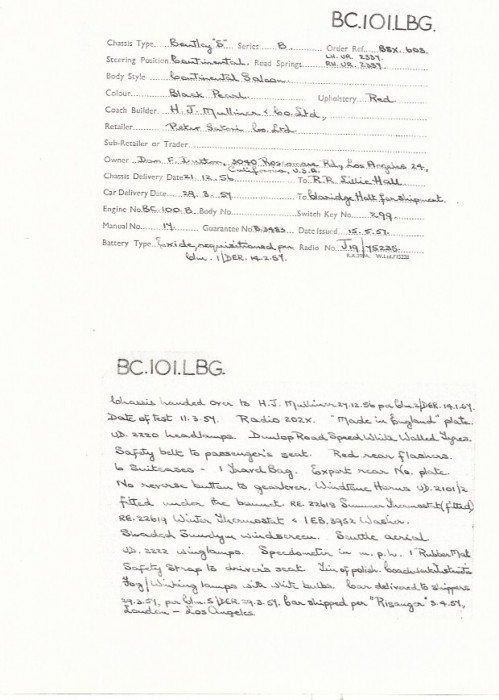 BC.101.LBG.
Chassis Type Bentley "S" Series B Order Ref. BSX. 603.
Steering Position Continental. Road Springs LH. UR. 2337. RH. UR. 2337.
Body Style Continental Saloon.
Colour Black Pearl Upholstery Red
Coach Builder H. J. Mulliner & Co. Ltd,
Retailer Peter Satori Co. Ltd
Sub-Retailer or Trader
Owner F. 3040 Roscomare Rd, Los Angeles 24, California, U.S.A.
Chassis Delivery Date 21. 12. 56 To R.R. Lillie Hall
Car Delivery Date 29. 3. 57 To Claridge Holt for shipment.
Engine No. BC. 100. B. Body No Switch Key No. 299.
Manual No. 14 Guarantee No. B.3483 Date Issued 15. 5. 57.
Battery Type Exide, requisitioned per Radio No. J19/75235
1/DER. 14.2.57.
BC.101.LBG.
Chassis handed over to H. J. Mulliner 27.12.56 per 2/DER. 14.1.57.
Date of test 11. 3. 57. Radio 202X. "Made in England" plate.
UD. 2220 headlamps. Dunlop Road Speed White Walled Tyres.
Safety belt to passenger's seat. Red rear flashers.
6 Suitcases - 1 Travel Bag. Export rear No. plate.
No reverse button to gearlever. Windtone Horns UD. 2101/2
fitted under the bonnet. RE. 22618 Summer Thermostat (fitted)
RE. 22619 Winter Thermostat & 1 EB. 3952 Washer.
Shaded Sundym windscreen. aerial
UD. 2222 winglamps. Speedometer in m. p. h. 1 Rubber Mat
Safety Strap to driver's seat. Tin of polish.
Fog/Winking lamps with White bulbs. Car delivered to shippers
29.3.57, per 5/DER 29.3.57. Car shipped per "Risanger" 3.4.57,
London - Los Angeles